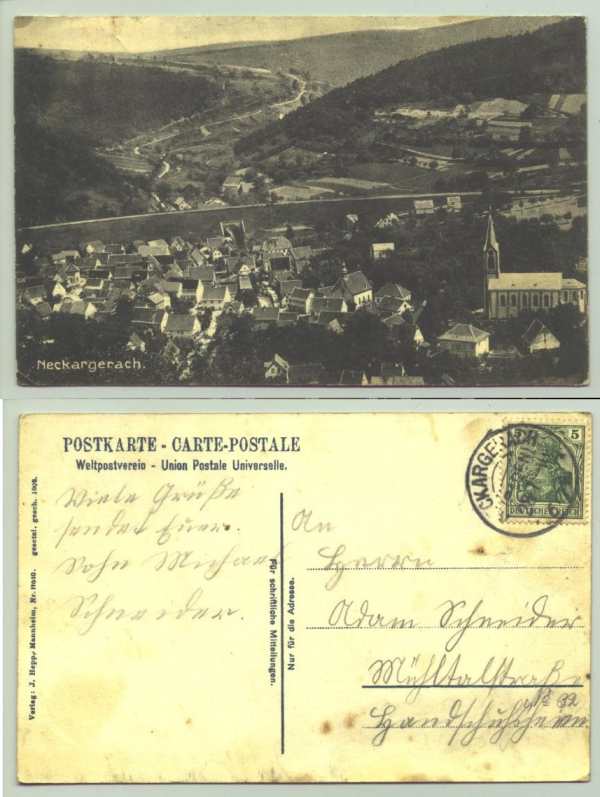 Neckargerach.
POSTKARTE - CARTE-POSTALE
Weltpostverein - Union Postale Universelle.
Viele Grüße
sendet Euer
Sohn Michael
Schneider
Verlag: J. Hepp, Mannheim, Nr. gesetzl. gesch. 1908.
Für schriftliche Mitteilungen.
Nur für die Adresse.
An
Herrn
Adam Schneider
Mühltalstraße
№ 32
Handschuhsheim
CKARGERACH
5
DEUTSCHES REICH